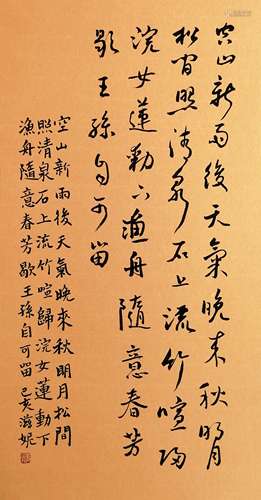 空山新雨後天氣晚来秋明月
松間照清泉石上流竹喧歸
浣女蓮動下漁舟隨意春芳
歇王孫自可留
空山新雨後天氣晚來秋明月松間
照清泉石上流竹喧歸浣女蓮動下
漁舟隨意春芳歇王孫自可留己亥海妮